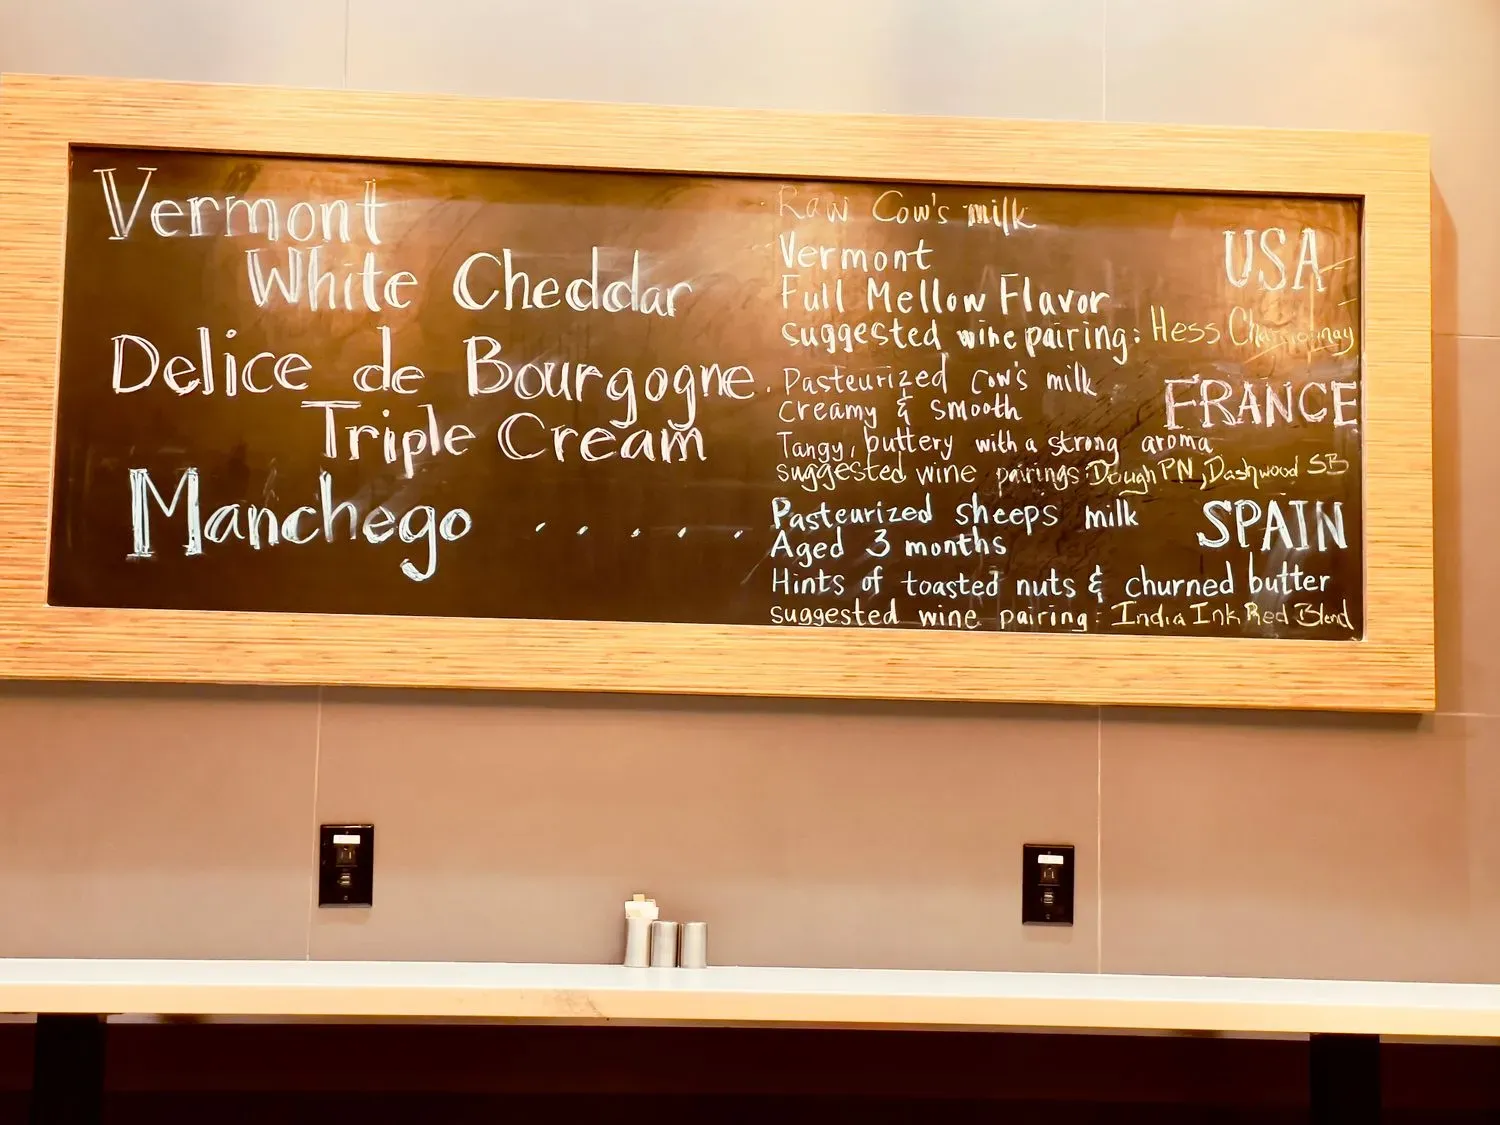 Vermont
White Cheddar
Raw Cow's milk
Vermont
USA
Full Mellow Flavor
suggested wine pairing: Hess Chardonnay
Delice de Bourgogne.
Triple Cream
Pasteurized cow's milk
FRANCE
Creamy & smooth
Tangy, buttery with a strong aroma
suggested wine pairings: Dough PN, Dashwood SB
Manchego . . . . .
Pasteurized sheeps milk
SPAIN
Aged 3 months
Hints of toasted nuts & churned butter
suggested wine pairing: India Ink Red Blend